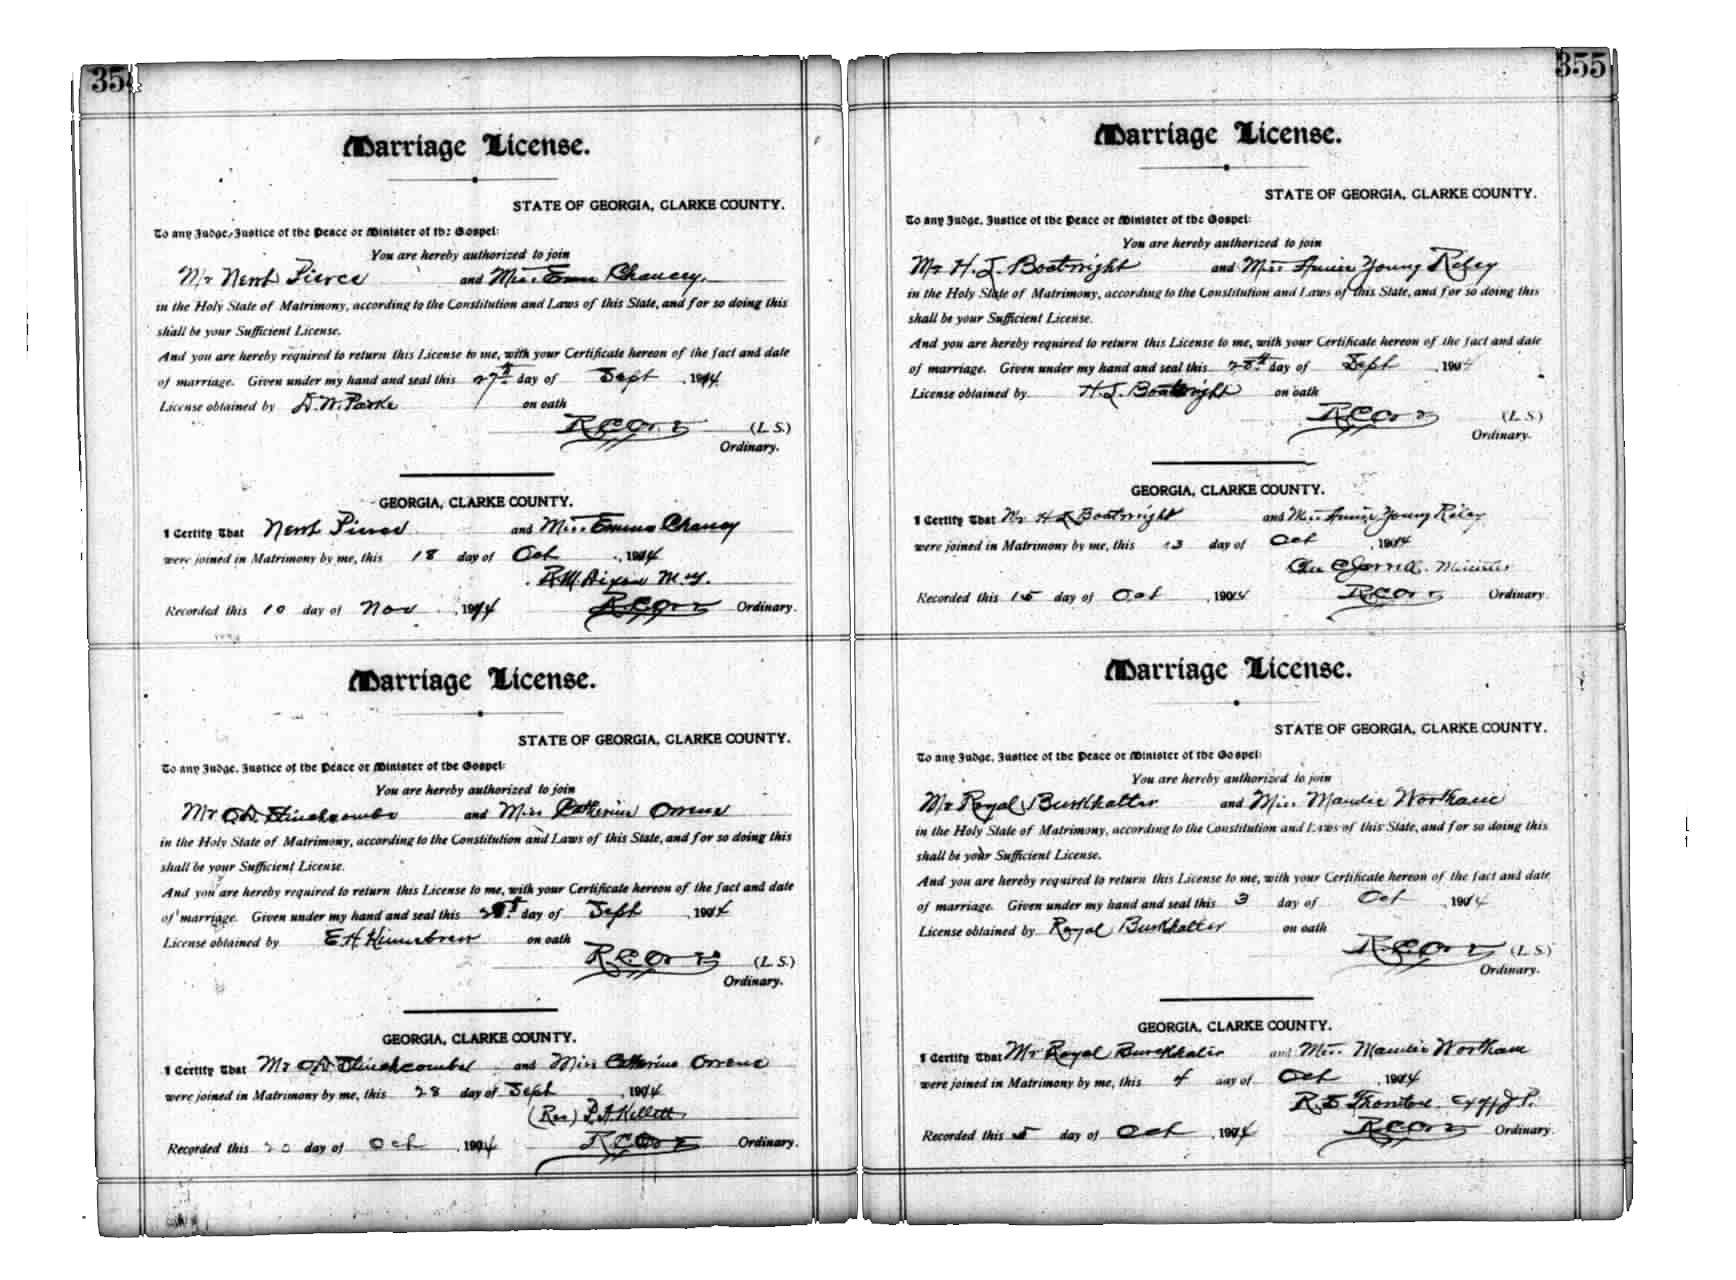 354
Marriage License.
STATE OF GEORGIA, CLARKE COUNTY.
To any Judge, Justice of the Peace or Minister of the Gospel:
You are hereby authorized to join
Mr Newt Pierce and Miss Emma Chancy.
in the Holy State of Matrimony, according to the Constitution and Laws of this State, and for so doing this
shall be your Sufficient License.
And you are hereby required to return this License to me, with your Certificate hereon of the fact and date
of marriage. Given under my hand and seal this 27th day of Sept, 1914
License obtained by D.W. Parke on oath
R C Orr (L. S.)
Ordinary.
GEORGIA, CLARKE COUNTY.
I Certify That Newt Pierce and Miss Emma Chancy
were joined in Matrimony by me, this 18 day of Oct, 1914
R.M. Dixon M.G.
Recorded this 10 day of Nov, 1914 R C Orr Ordinary.
Marriage License.
STATE OF GEORGIA, CLARKE COUNTY.
To any Judge, Justice of the Peace or Minister of the Gospel:
You are hereby authorized to join
Mr Hinchcombe and Miss Catherine
in the Holy State of Matrimony, according to the Constitution and Laws of this State, and for so doing this
shall be your Sufficient License.
And you are hereby required to return this License to me, with your Certificate hereon of the fact and date
of marriage. Given under my hand and seal this day of Sept, 1914
License obtained by E H Kinnebrew on oath
R C Orr (L. S.)
Ordinary.
GEORGIA, CLARKE COUNTY.
I Certify That Mr and Miss Catherine
were joined in Matrimony by me, this 28 day of Sept, 1914
(Rev) P.A. Kellett
Recorded this 20 day of Oct, 1914 R C Orr Ordinary.
355
Marriage License.
STATE OF GEORGIA, CLARKE COUNTY.
To any Judge, Justice of the Peace or Minister of the Gospel:
You are hereby authorized to join
Mr H. J. Boatwright and Miss Annie Young Riley
in the Holy State of Matrimony, according to the Constitution and Laws of this State, and for so doing this
shall be your Sufficient License.
And you are hereby required to return this License to me, with your Certificate hereon of the fact and date
of marriage. Given under my hand and seal this 28th day of Sept, 1904
License obtained by H. J. Boatwright on oath
R C Orr (L. S.)
Ordinary.
GEORGIA, CLARKE COUNTY.
I Certify That Mr H J Boatwright and Miss Annie Young Riley
were joined in Matrimony by me, this 13 day of Oct, 1914
Jarrell. Minister
Recorded this 15 day of Oct, 1914 R C Orr Ordinary.
Marriage License.
STATE OF GEORGIA, CLARKE COUNTY.
To any Judge, Justice of the Peace or Minister of the Gospel:
You are hereby authorized to join
Mr Royal Burkhalter and Miss Maudie Worthane
in the Holy State of Matrimony, according to the Constitution and Laws of this State, and for so doing this
shall be your Sufficient License.
And you are hereby required to return this License to me, with your Certificate hereon of the fact and date
of marriage. Given under my hand and seal this 3 day of Oct, 1914
License obtained by Royal Burkhalter on oath
R C Orr (L. S.)
Ordinary.
GEORGIA, CLARKE COUNTY.
I Certify That Mr Royal Burkhalter and Miss Maudie Wortham
were joined in Matrimony by me, this 4 day of Oct, 1914
R E Thornton J P.
Recorded this 5 day of Oct, 1914 R C Orr Ordinary.